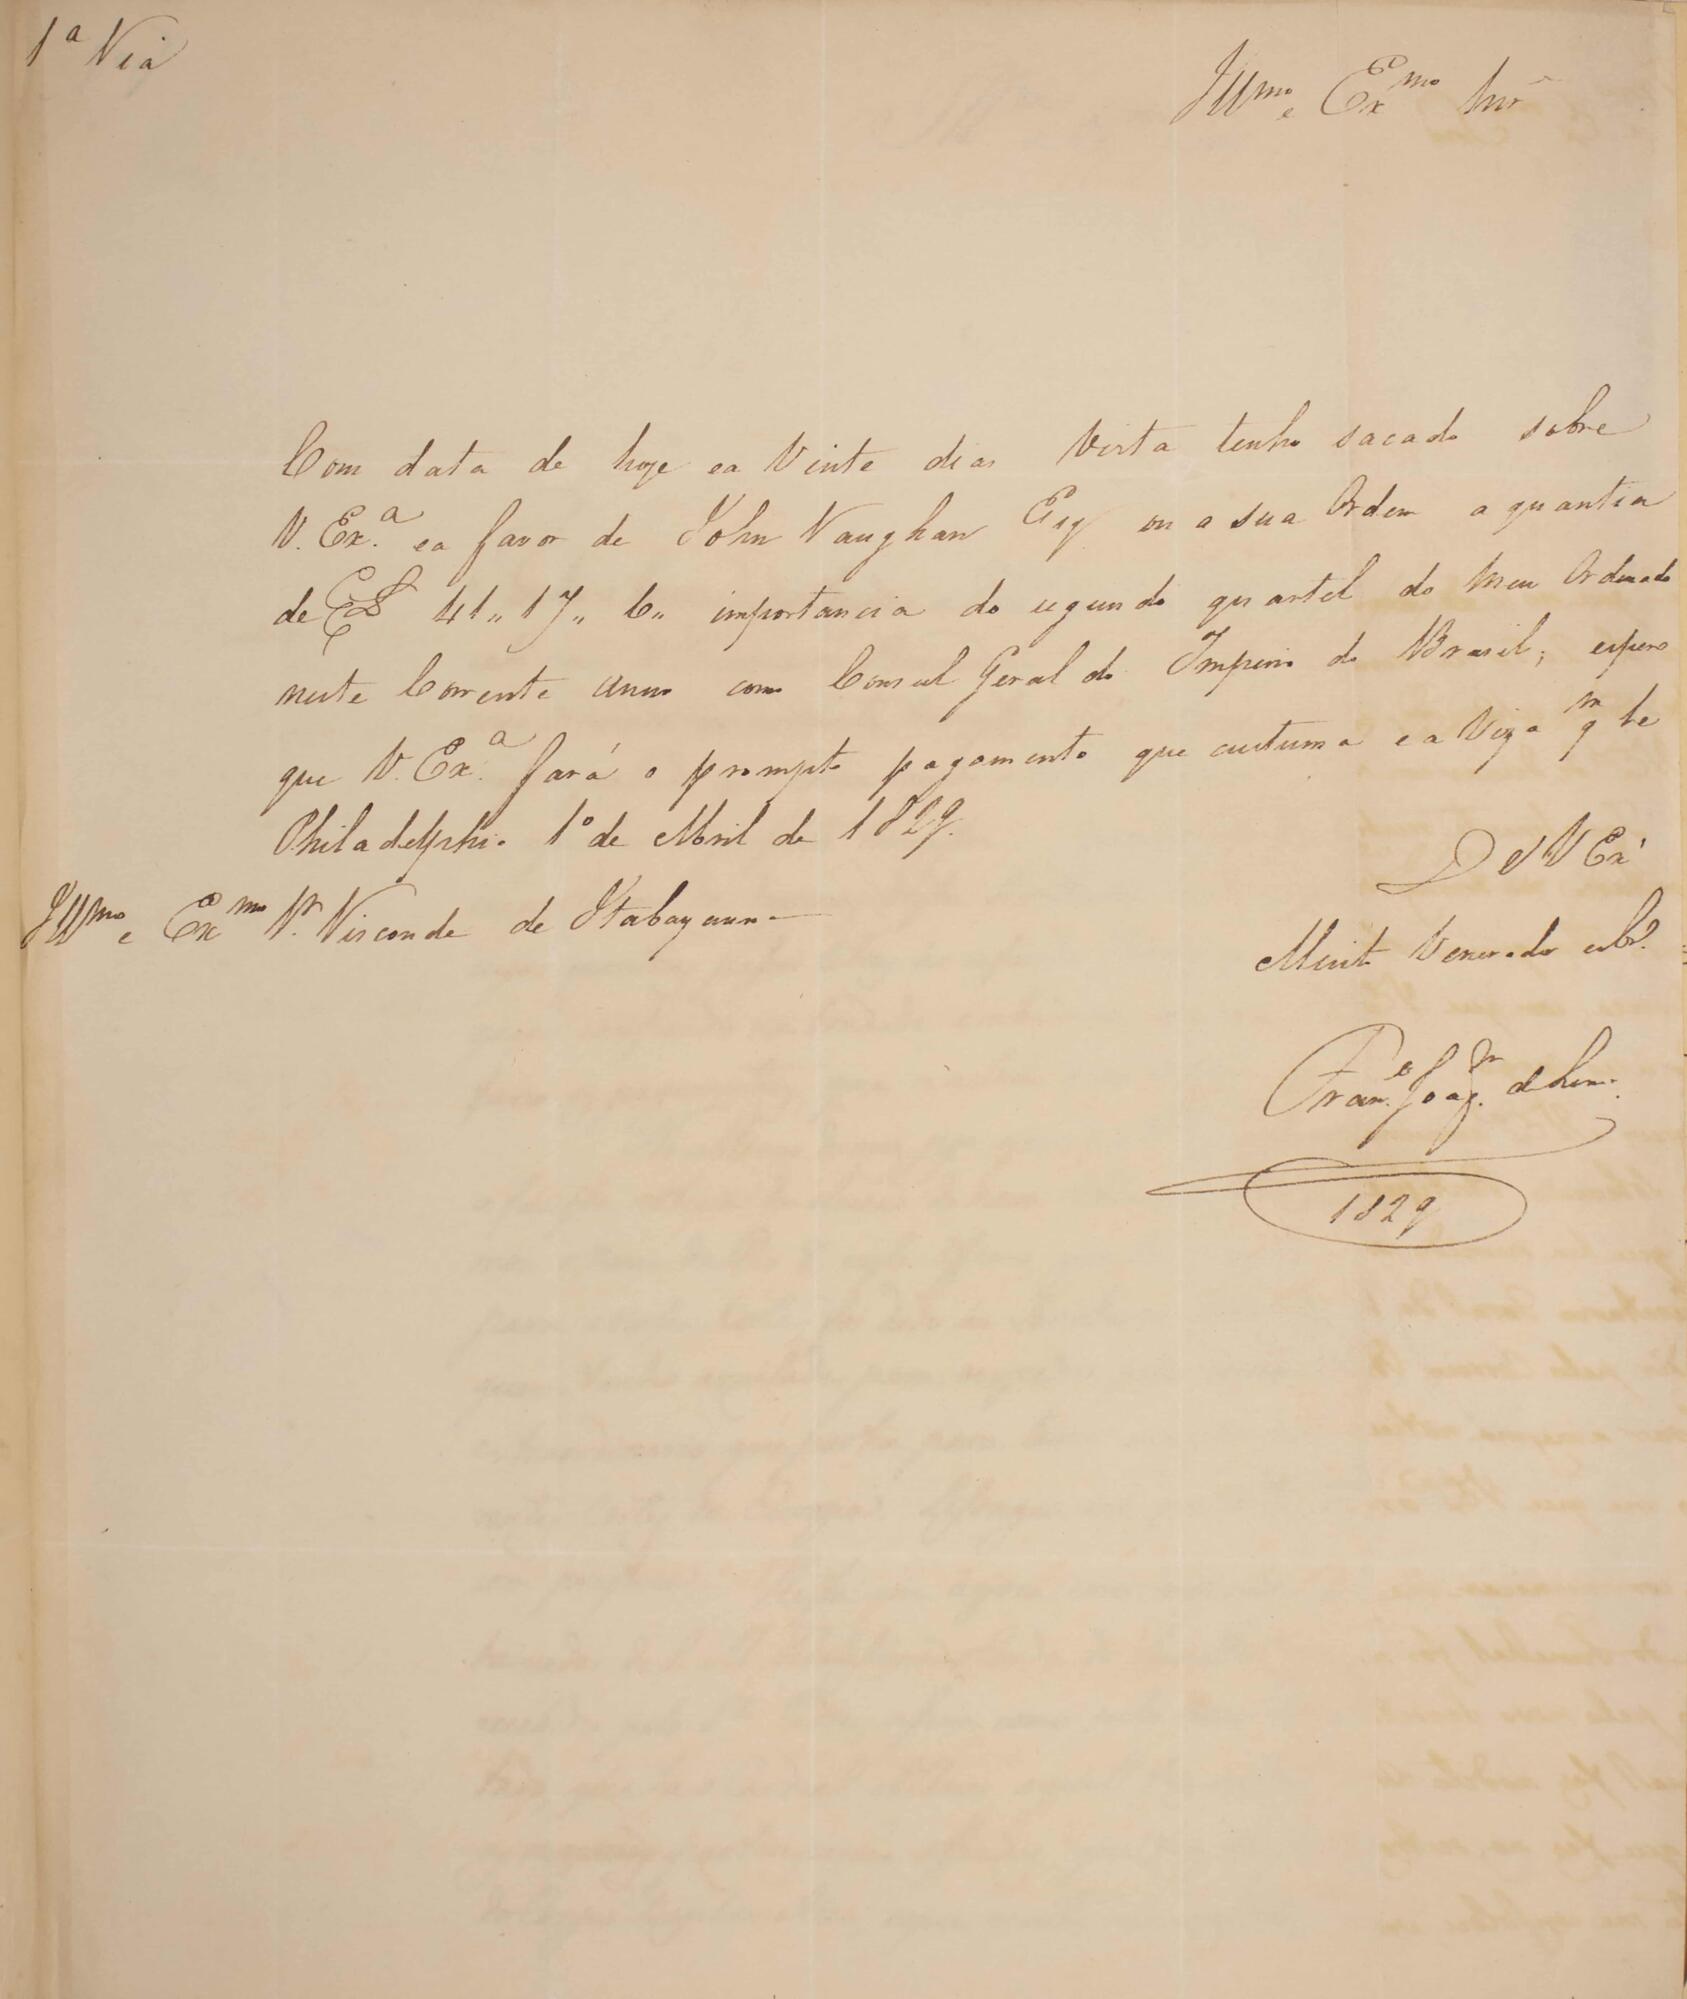 1ª Via
Illmo e Exmo Snr
Com data de hoje ea Vinte dias Vista tenho sacado sobre
V. Exª. ea favor de John Vaughan Esq ou a sua Ordem a quantia
de 41,, 17,, 6,, importancia do segundo quartel do meu Ordenado
neste Corrente anno como Consul Geral do Imperio do Brasil; espero
que V. Exª. fará o prompto pagamento que custuma e a
Philadelphia 1º de Abril de 1829.
D V Exª
Illmo e Exmo Visconde de Itabayanna
Muito Venerador
Franco Joaqm de Lima
1829